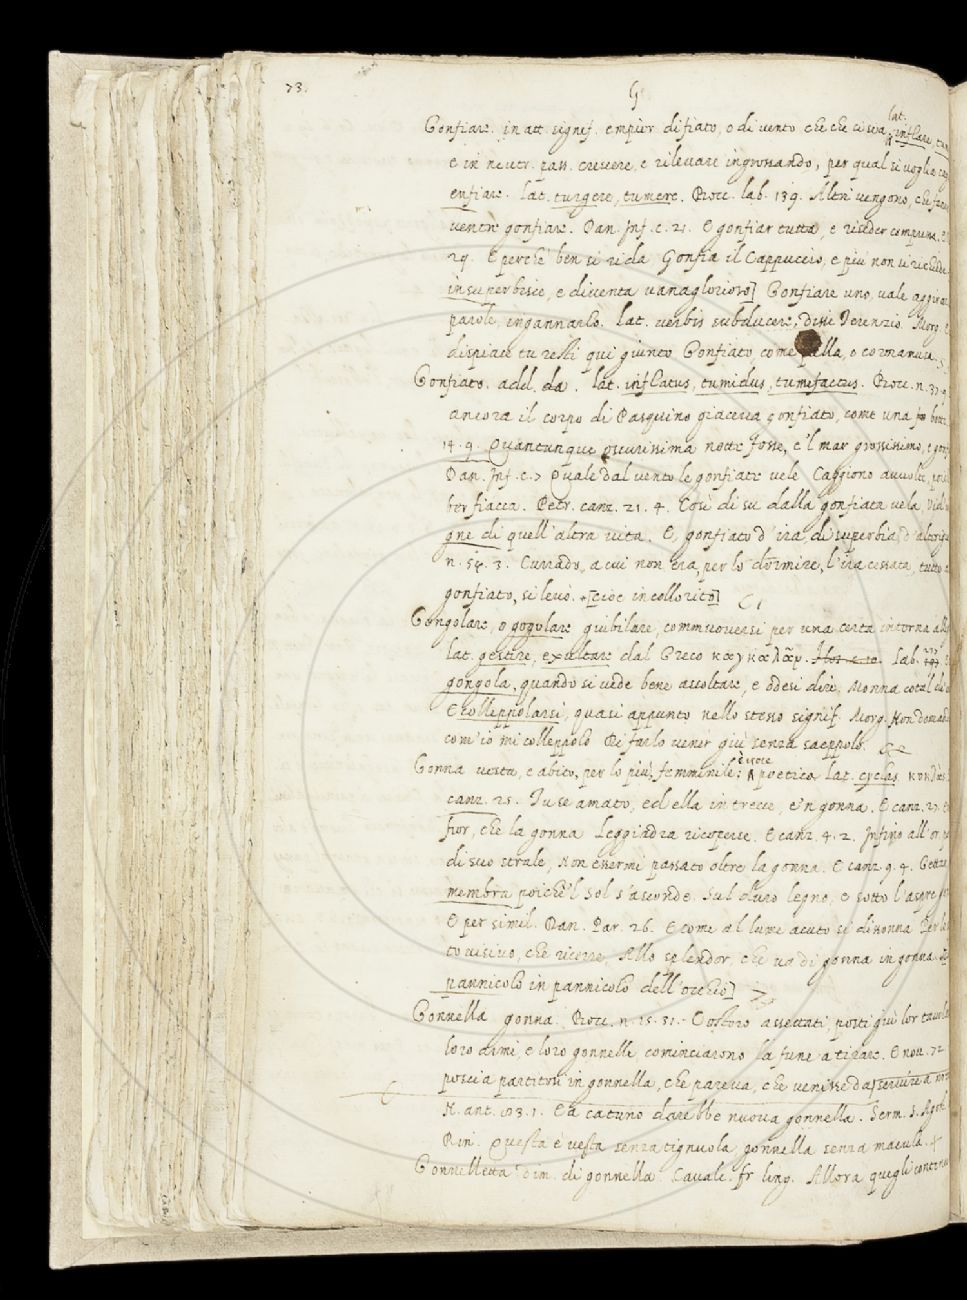 73.
G
lat.
Gonfiare. in att. signif. empier di fiato, o di vento che che si sia, inflare,
e in neutr. pass. crescere, e rilevare ingrossando, per qual si voglia
enfiare. lat. turgere, tumere. Bocc. lab. 189. Altri vengono, che
ventre gonfiare. Dan. Inf. c. 21. E gonfiar tutta, e riseder compressa.
29. E perchè ben si rida Gonfia il Cappuccio, e più non si richiede
insuperbisce, e diventa vanaglorioso] Gonfiare uno, vale
parole, ingannarlo. lat. verbis subducere, disse Terenzio. Morg.
dispiace tu resti qui giunto Gonfiato, come palla, o
Gonfiato. add. da. lat. inflatus, tumidus, tumefactus. Bocc. n. 37. 9
ancora il corpo di Pasquino giaceva gonfiato, come una botte
14. 9. Quantunque oscurissima notte fosse, e 'l mar grossissimo, e
Dan. Inf. c. 7 Quale dal vento le gonfiate vele Caggiono avvolte,
ber fiacca. Petr. canz. 21. 4. Così di su dalla gonfiata vela
gne di quell' altra vita. E, gonfiato d'ira, di superbia, d'
n. 54. 3. Currado, a cui non era, per lo dormire, l'ira cessata, tutto
gonfiato, si levò. [cioè incollorito]
Gongolare, o gogolare giubilare, commuoversi per una certa interna
lat. gestire, exultare dal Greco lab.
gongola, quando si vede bene ascoltare, e odesi dire, Monna cotal
E collepolarsi, quasi appunto nello stesso signif. Morg. Non
com' io mi colleppolo Di farlo venir giù senza saeppolo.
è voce
Gonna vesta, e abito, per lo più, femminile: poetica lat. cyclas
canz. 25. Tu se amato, ed ella in trecce, e 'n gonna. E canz. 27.
fior, che la gonna Leggiadra ricoperse. E canz. 4. 2. Infino all' or
di suo strale, Non essermi passato oltre la gonna. E canz. 9. 4.
membra poichè 'l Sol s'asconde. Sul duro legno, e sotto l' aspre
E per simil. Dan. Par. 26. E come al lume acuto si disonna Per lo
to visivo, che ricorre, Allo splendor, che va di gonna in gonna
pannicolo in pannicolo dell' occhio]
Gonnella gonna. Bocc. n. 15. 31. Costoro assettati, posti giù lor tavolacci
loro armi, e loro gonnelle cominciarono la fune a tirare. E nov. 72
poscia partitosi in gonnella, che pareva, che venisse da servire a nozze
N. ant. 83. 1. E a catuno darebbe nuova gonnella. Serm. S. Agost.
Rin. Questa è vesta senza tignuola, gonnella senza macula.
Gonnelletta dim. di gonnella. Cavalc. fr. ling. Allora quegli